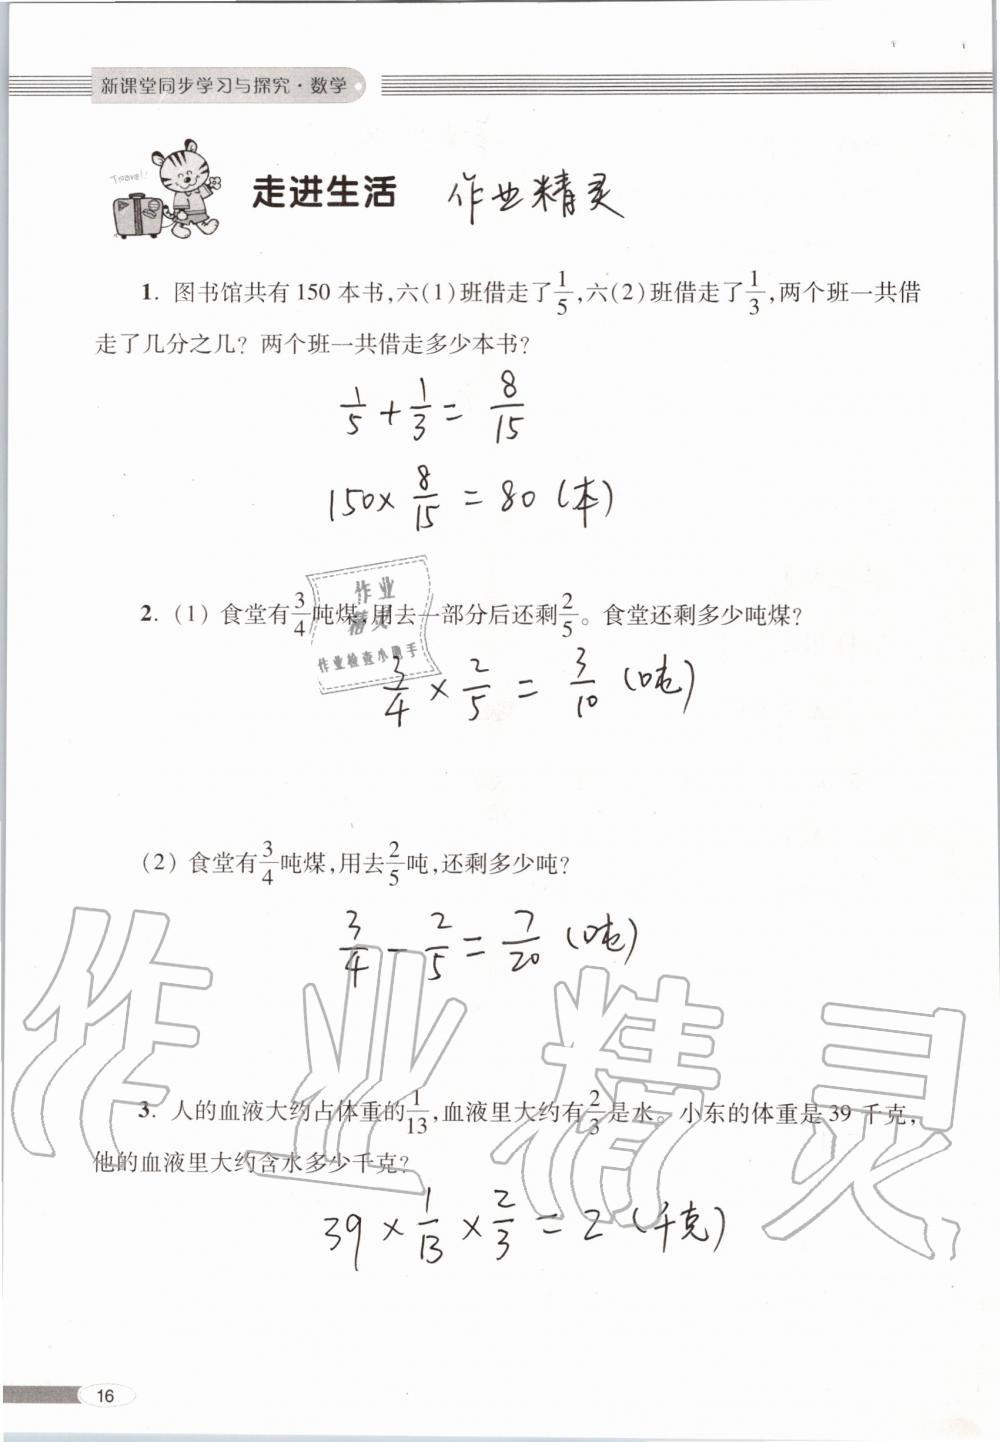 新课堂同步学习与探究·数学
Travel!
走进生活 作业精灵
1. 图书馆共有150本书,六(1)班借走了1/5,六(2)班借走了1/3,两个班一共借
走了几分之几? 两个班一共借走多少本书?
1/5 + 1/3 = 8/15
150× 8/15 = 80 (本)
作业
精灵
作业检查小助手
2. (1) 食堂有3/4吨煤,用去一部分后还剩2/5。食堂还剩多少吨煤?
3/4 × 2/5 = 3/10 (吨)
(2) 食堂有3/4吨煤,用去2/5吨,还剩多少吨?
3/4 - 2/5 = 7/20 (吨)
作业精灵
3. 人的血液大约占体重的1/13,血液里大约有2/3是水。小东的体重是39千克,
他的血液里大约含水多少千克?
39 × 1/13 × 2/3 = 2 (千克)
16